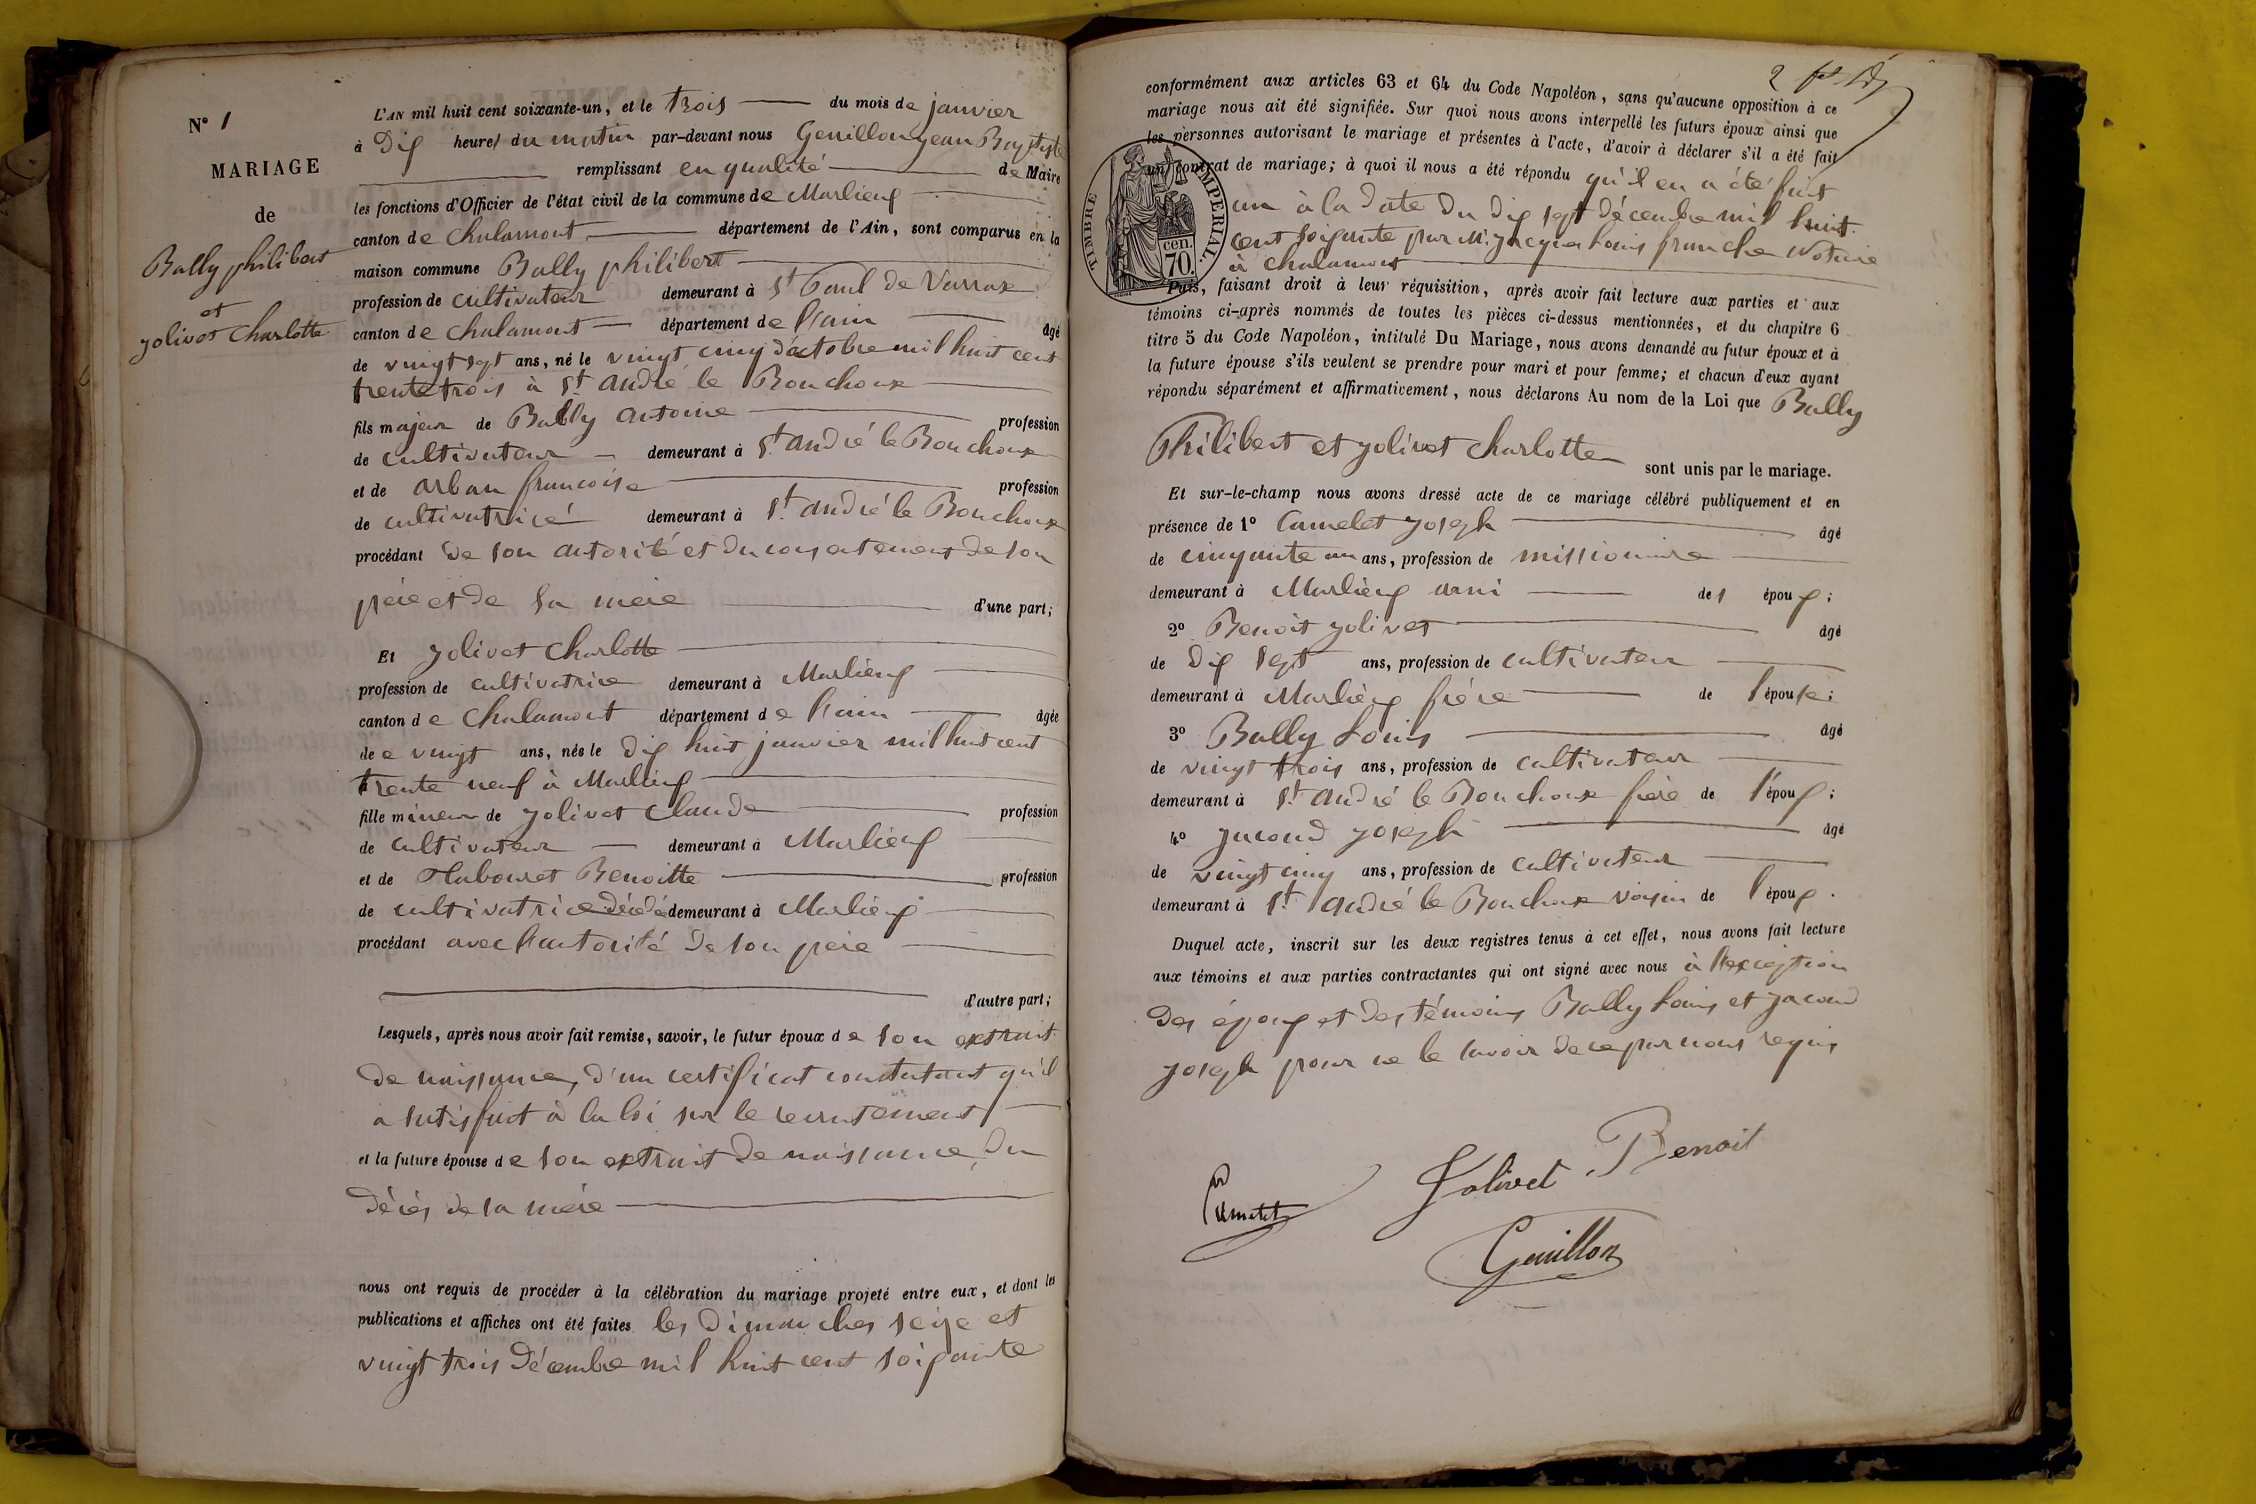 N° 1
MARIAGE
de
Bully philibert
et
jolivet charlotte
L'AN mil huit cent soixante-un, et le trois du mois de janvier
à dix heures du matin par-devant nous Genillon jean Baptiste
remplissant en qualité de Maire
les fonctions d'Officier de l'état civil de la commune de Marlieux
canton de chalamont département de l'Ain, sont comparus en la
maison commune Bully philibert
profession de cultivateur demeurant à St Paul de Varrax
canton de chalamont département de l'ain âgé
de vingt sept ans, né le vingt cinq d'actobre mil huit cent
trente trois à St andré le Bouchoux
fils majeur de Bully antoine profession
de cultivateur demeurant à St andré le Bouchoux
et de arban francoise profession
de cultivatrice demeurant à St andré le Bouchoux
procédant de son autorité et du consentement de son
père et de sa mère d'une part;
Et jolivet charlotte
profession de cultivatrice demeurant à Marlieux
canton de chalamont département de l'ain âgée
de vingt ans, née le dix huit janvier mil huit cent
trente neuf à Marlieux
fille mineur de jolivet claude profession
de cultivateur demeurant à Marlieux
et de Benoitte profession
de cultivatrice décédé demeurant à Marlieux
procédant avec l'autorité de son père
d'autre part;
Lesquels, après nous avoir fait remise, savoir, le futur époux de son extrait
de naissance, d'un certificat constatant qu'il
a satisfait à la loi sur le recrutement
et la future épouse de son extrait de naissance, du
décès de sa mère
nous ont requis de procéder à la célébration du mariage projeté entre eux, et dont les
publications et affiches ont été faites les dimanches seize et
vingt trois décembre mil huit cent soixante
2
conformément aux articles 63 et 64 du Code Napoléon, sans qu'aucune opposition à ce
mariage nous ait été signifiée. Sur quoi nous avons interpellé les futurs époux ainsi que
les personnes autorisant le mariage et présentes à l'acte, d'avoir à déclarer s'il a été fait
un contrat de mariage; à quoi il nous a été répondu qu'il en a été fait
un à la date du dix sept décembre mil huit
cent soixante par Me jacques louis franche Notaire
à chalamont
TIMBRE IMPERIAL.
70. cen.
Puis, faisant droit à leur réquisition, après avoir fait lecture aux parties et aux
témoins ci-après nommés de toutes les pièces ci-dessus mentionnées, et du chapitre 6
titre 5 du Code Napoléon, intitulé Du Mariage, nous avons demandé au futur époux et à
la future épouse s'ils veulent se prendre pour mari et pour femme; et chacun d'eux ayant
répondu séparément et affirmativement, nous déclarons Au nom de la Loi que Bully
Philibert et jolivet charlotte sont unis par le mariage.
Et sur-le-champ nous avons dressé acte de ce mariage célébré publiquement et en
présence de 1° Camelet joseph âgé
de cinquante un ans, profession de missionnaire
demeurant à Marlieux ami des époux;
2° Benoit jolivet âgé
de dix sept ans, profession de cultivateur
demeurant à Marlieux frère de l'épouse;
3° Bully Louis âgé
de vingt trois ans, profession de cultivateur
demeurant à St andré le Bouchoux frère de l'époux;
4° jacoud joseph âgé
de vingt cinq ans, profession de cultivateur
demeurant à St andré le Bouchoux voisin de l'époux.
Duquel acte, inscrit sur les deux registres tenus à cet effet, nous avons fait lecture
aux témoins et aux parties contractantes qui ont signé avec nous à l'exception
des époux et des témoins Bully louis et jacoud
joseph pour ne le savoir de ce par nous requis
Jolivet Benoit
Camelet
Genillon